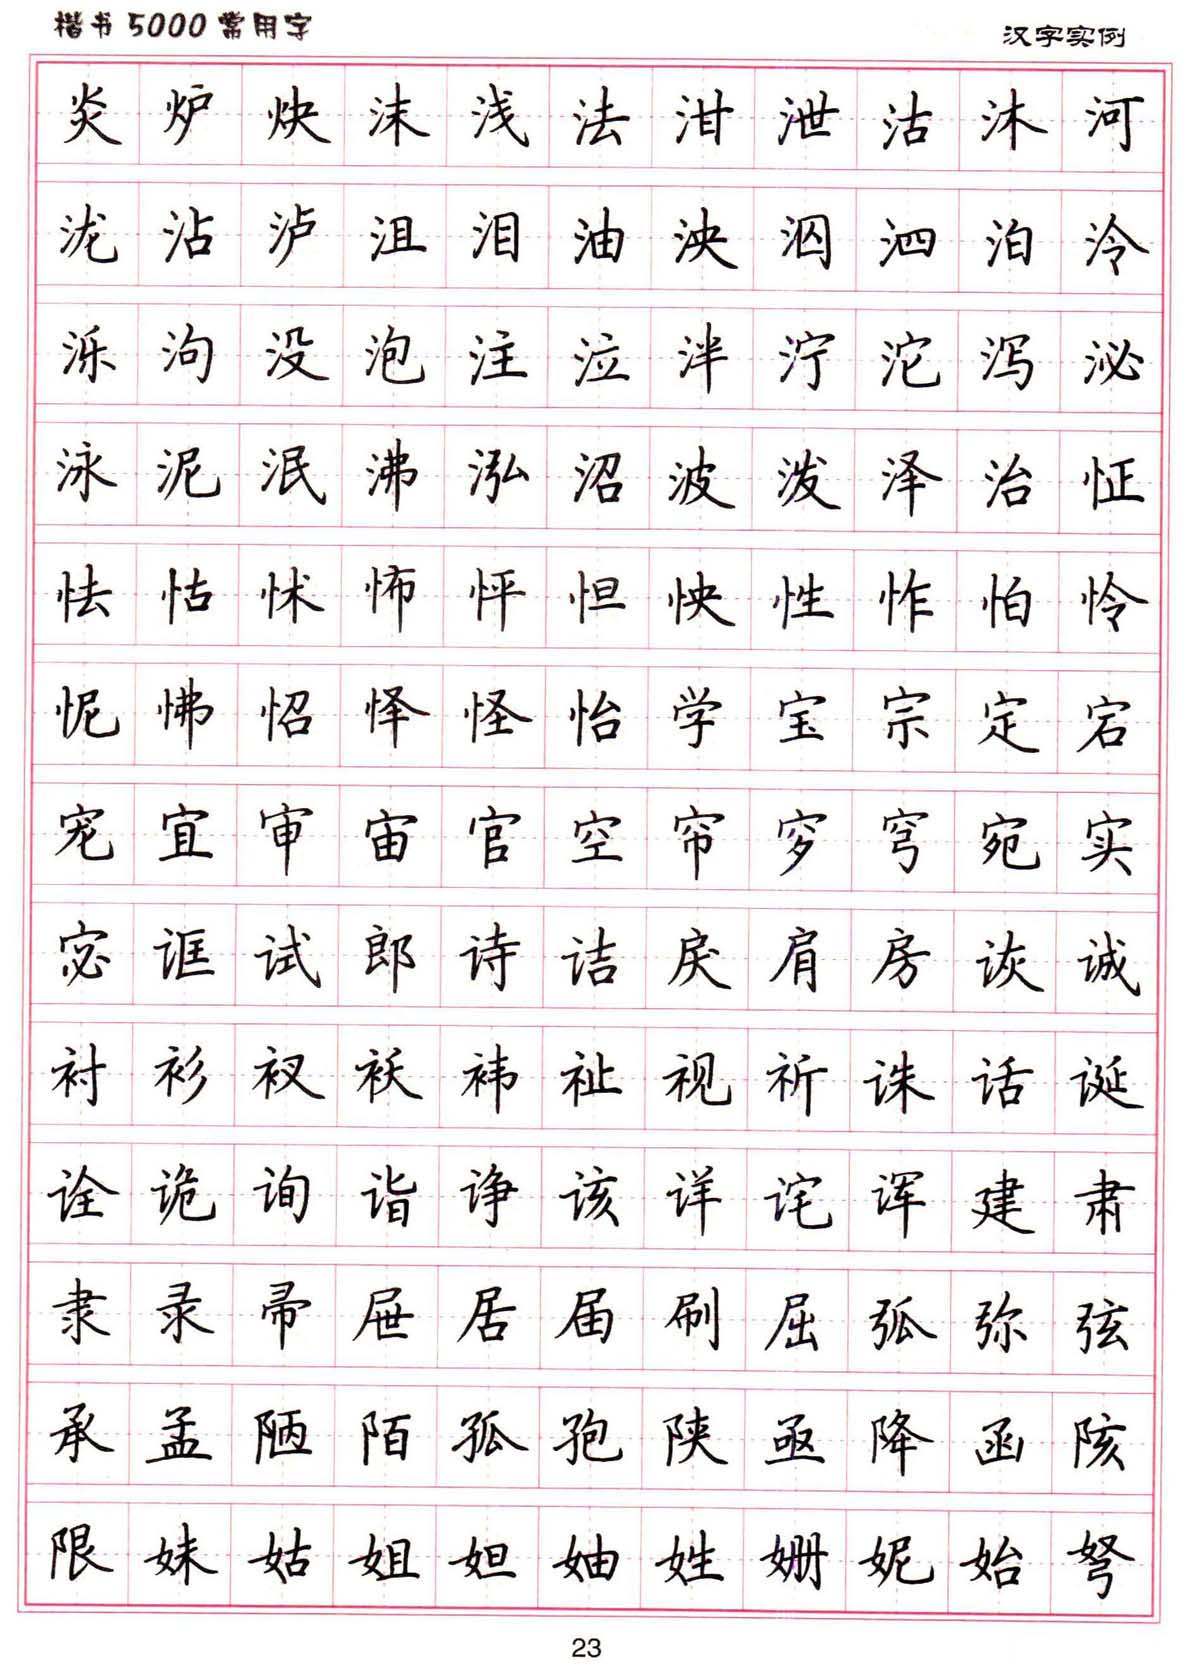 楷书5000常用字 汉字实例
炎炉炔沫浅法泔泄沽沐河
泷沾泸沮泪油泱泅泗泊泠
泺沟没泡注泣泮泞沱泻泌
泳泥泯沸泓沼波泼泽治怔
怯怙怵怖怦怛怏性怍怕怜
怩怫怊怿怪怡学宝宗定宕
宠宜审宙官空帘穸穹宛实
宓诓试郎诗诘戾肩房诙诚
衬衫衩袄袆祉视祈诛话诞
诠诡询诣诤该详诧诨建肃
隶录帚屉居届刷屈弧弥弦
承孟陋陌孤孢陕亟降函陔
限妹姑姐妲妯姓姗妮始弩
23